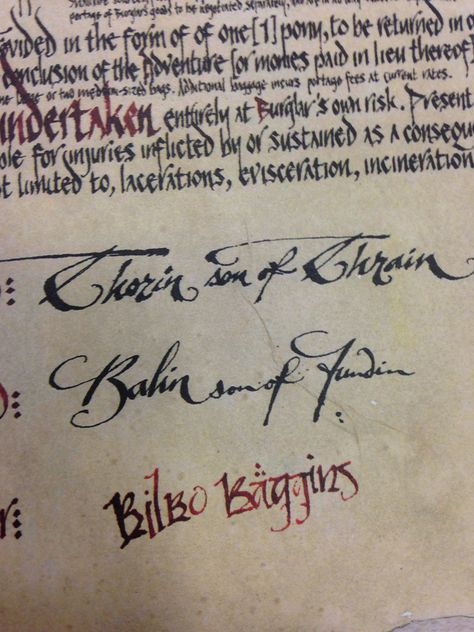 portage of Burglar's goods to be negotiated separately,
rovided in the form of of one [1] pony, to be returned in
conclusion of the Adventure [or monies paid in lieu thereof]
one large or two medium-sized bags. Additional baggage incurs portage fees at current rates.
undertaken entirely at Burglar's own risk. Present
ble for injuries inflicted by or sustained as a consequ
t limited to, lacerations, evisceration, incineration
: Thorin son of Thrain
: Balin son of Fundin
r: Bilbo Baggins